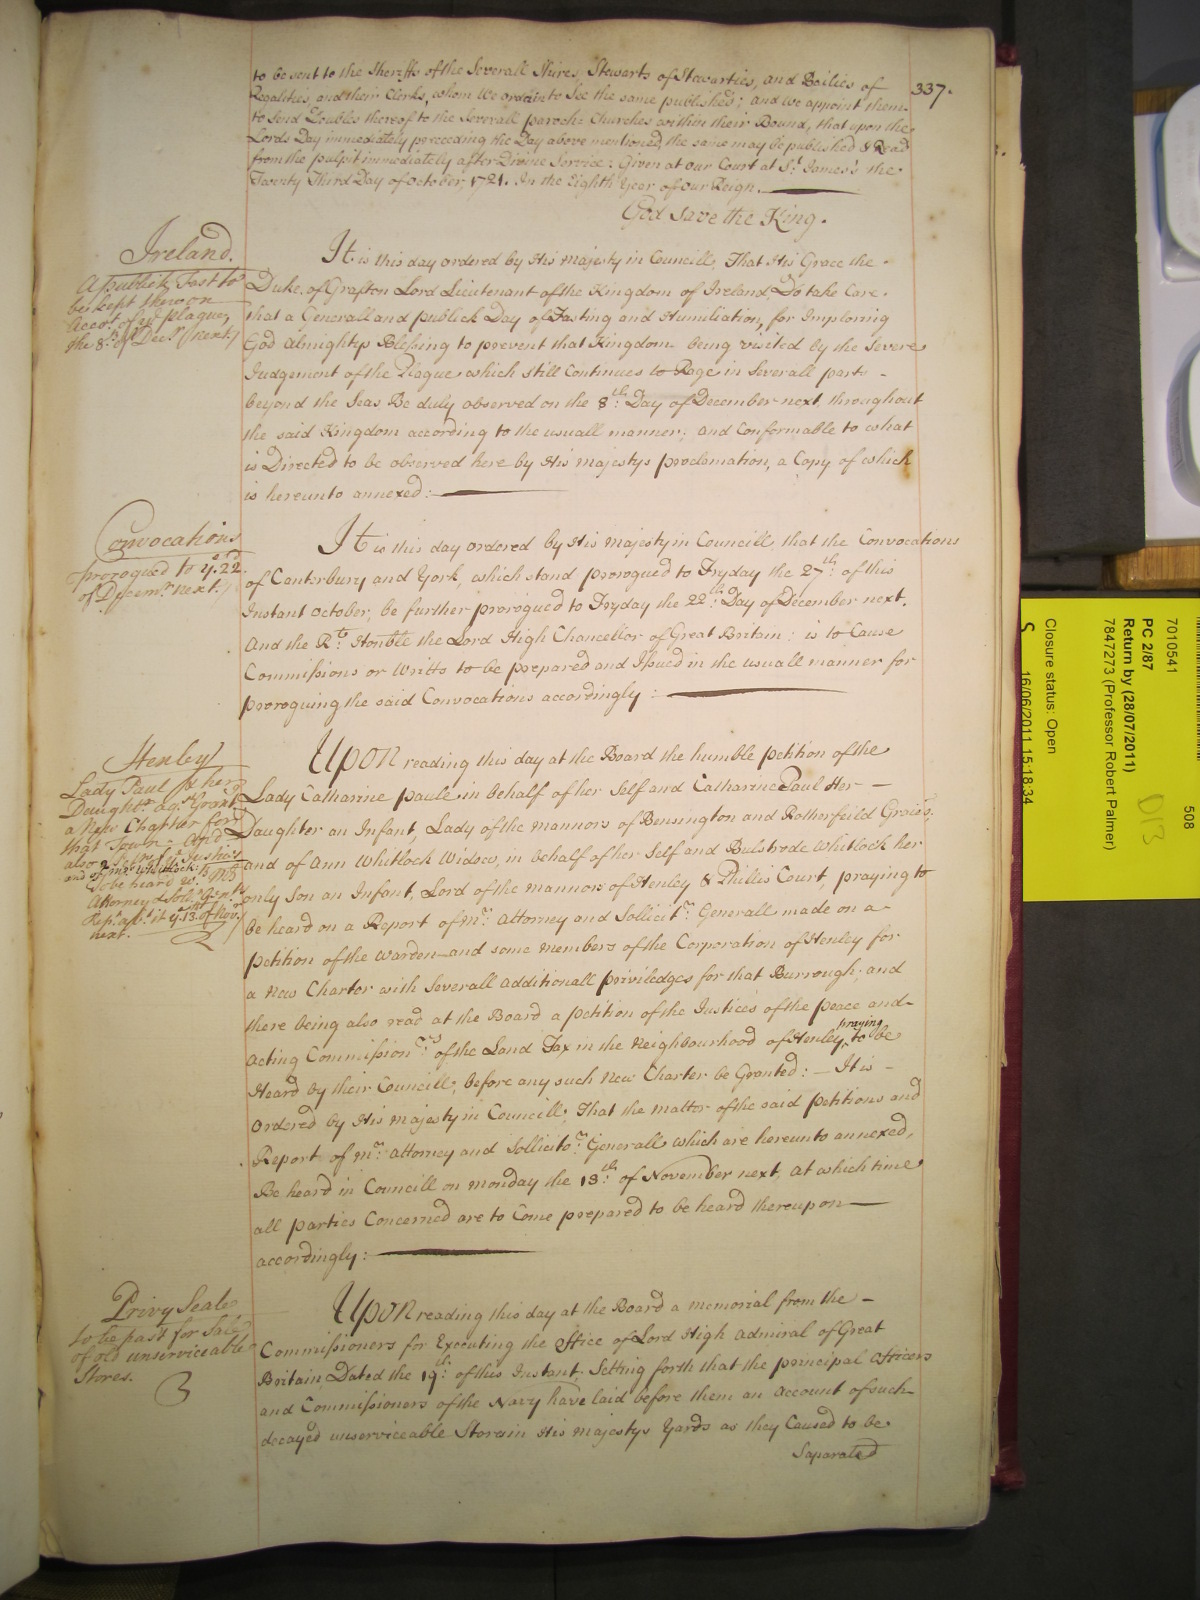 337.
to be sent to the Sheriffs of the Severall Shires, Stewarts of Stewarties, and Bailies of
Regalities, and their Clerks, whom We ordain to See the same published; and We appoint them
to Send Doubles thereof to the Severall paroch-Churches within their Bound, that upon the
Lords Day immediately preceeding the Day above mentioned, the same may be published & Read
from the pulpit immediately after Divine Service: Given at our Court at St. James's the
Twenty Third Day of October 1721. In the Eighth Year of our Reign.
God Save the King.
Ireland.
A publick Fast to
be kept there on
Accot. of ye plague,
the 8th. of Decr. next.
It is this day ordered by His Majesty in Councill, That His Grace the
Duke of Grafton Lord Lieutenant of the Kingdom of Ireland, Do take Care
that a Generall and publick Day of Fasting and Humiliation, for Imploring
God Almightys Blessing to prevent that Kingdom being visited by the Severe
Judgement of the Plague which still Continues to Rage in Severall parts -
beyond the Seas Be duly observed on the 8th. Day of December next, throughout
the said Kingdom according to the usuall manner; and Conformable to what
is Directed to be observed here by His Majestys proclamation, a Copy of which
is hereunto annexed:
Convocations
prorogued to ye. 22d
of Decemr. next.
It is this day ordered by His Majesty in Councill, that the Convocations
of Canterbury and York, which stand prorogued to Fryday the 27th. of this
Instant October, be further prorogued to Fryday the 22th. Day of December next.
And the Rt. Honble the Lord High Chancellor of Great Britain: is to Cause
Commissions or Writts to be prepared and Issued in the usuall manner for
proroguing the said Convocations accordingly:
Henley
Lady Paul for her
Daughtr. agst. Grant
a New Charter for
that Town - And
also
and of Mrs. Whitlock
To be heard wth.
Attorney & Sollr. Genll.
Rept. upon it ye. 13th. of Novr.
next.
Upon reading this day at the Board the humble petition of the
Lady Catharine paule in behalf of her Self and Catharine Paul Her -
Daughter an Infant, Lady of the mannors of Bensington and Rotherfeild Greies,
and of Ann Whitlock Widow, in behalf of her Self and Bulstrode Whitlock her
only Son an Infant, Lord of the mannors of Henley & Phillis Court, praying to
be heard on a Report of Mr. Attorney and Sollicitr. Generall made on a
petition of the Warden and some members of the Corporation of Henley for
a New Charter with Severall additionall priviledges for that Burrough; and
there being also read at the Board a petition of the Justices of the peace and
acting Commissionrs. of the Land Tax in the Neighbourhood of Henley praying to be
Heard by their Councill, before any such New Charter be Granted: - It is -
ordered by His Majesty in Councill, That the matter of the said petitions and
Report of Mr. Attorney and Sollicitor. Generall which are hereunto annexed,
Be heard in Councill on Monday the 13th. of November next, at which time
all parties Concerned are to Come prepared to be heard thereupon
accordingly:
Privy Seale
to be past for Sale
of old unserviceable
Stores.
Upon reading this day at the Board a memorial from the -
Commissioners for Executing the office of Lord High Admiral of Great
Britain, Dated the 19th. of this Instant, Setting forth that the principal officers
and Commissioners of the Navy have laid before them an account of such
decayed unserviceable Stores in His Majestys Yards as they Caused to be
Separated
508
7010541
PC 2/87
Return by (28/07/2011)
7847273 (Professor Robert Palmer)
Closure status: Open
16/06/2011 15:18:34
S
D13